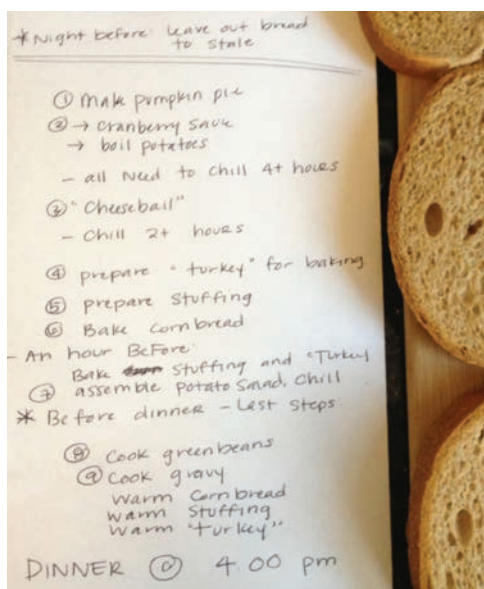 *Night before leave out bread
to stale
① Make pumpkin pie
② → cranberry sauce
→ boil potatoes
- all Need to chill 4+ hours
③ "Cheeseball"
- Chill 2+ hours
④ prepare "turkey" for baking
⑤ prepare stuffing
⑥ Bake cornbread
- An hour Before:
Bake stuffing and "Turkey
⑦ assemble potato salad, chill
* Before dinner - Last steps:
⑧ Cook greenbeans
⑨ Cook gravy
Warm Cornbread
Warm Stuffing
Warm "turkey"
DINNER @ 4:00 pm